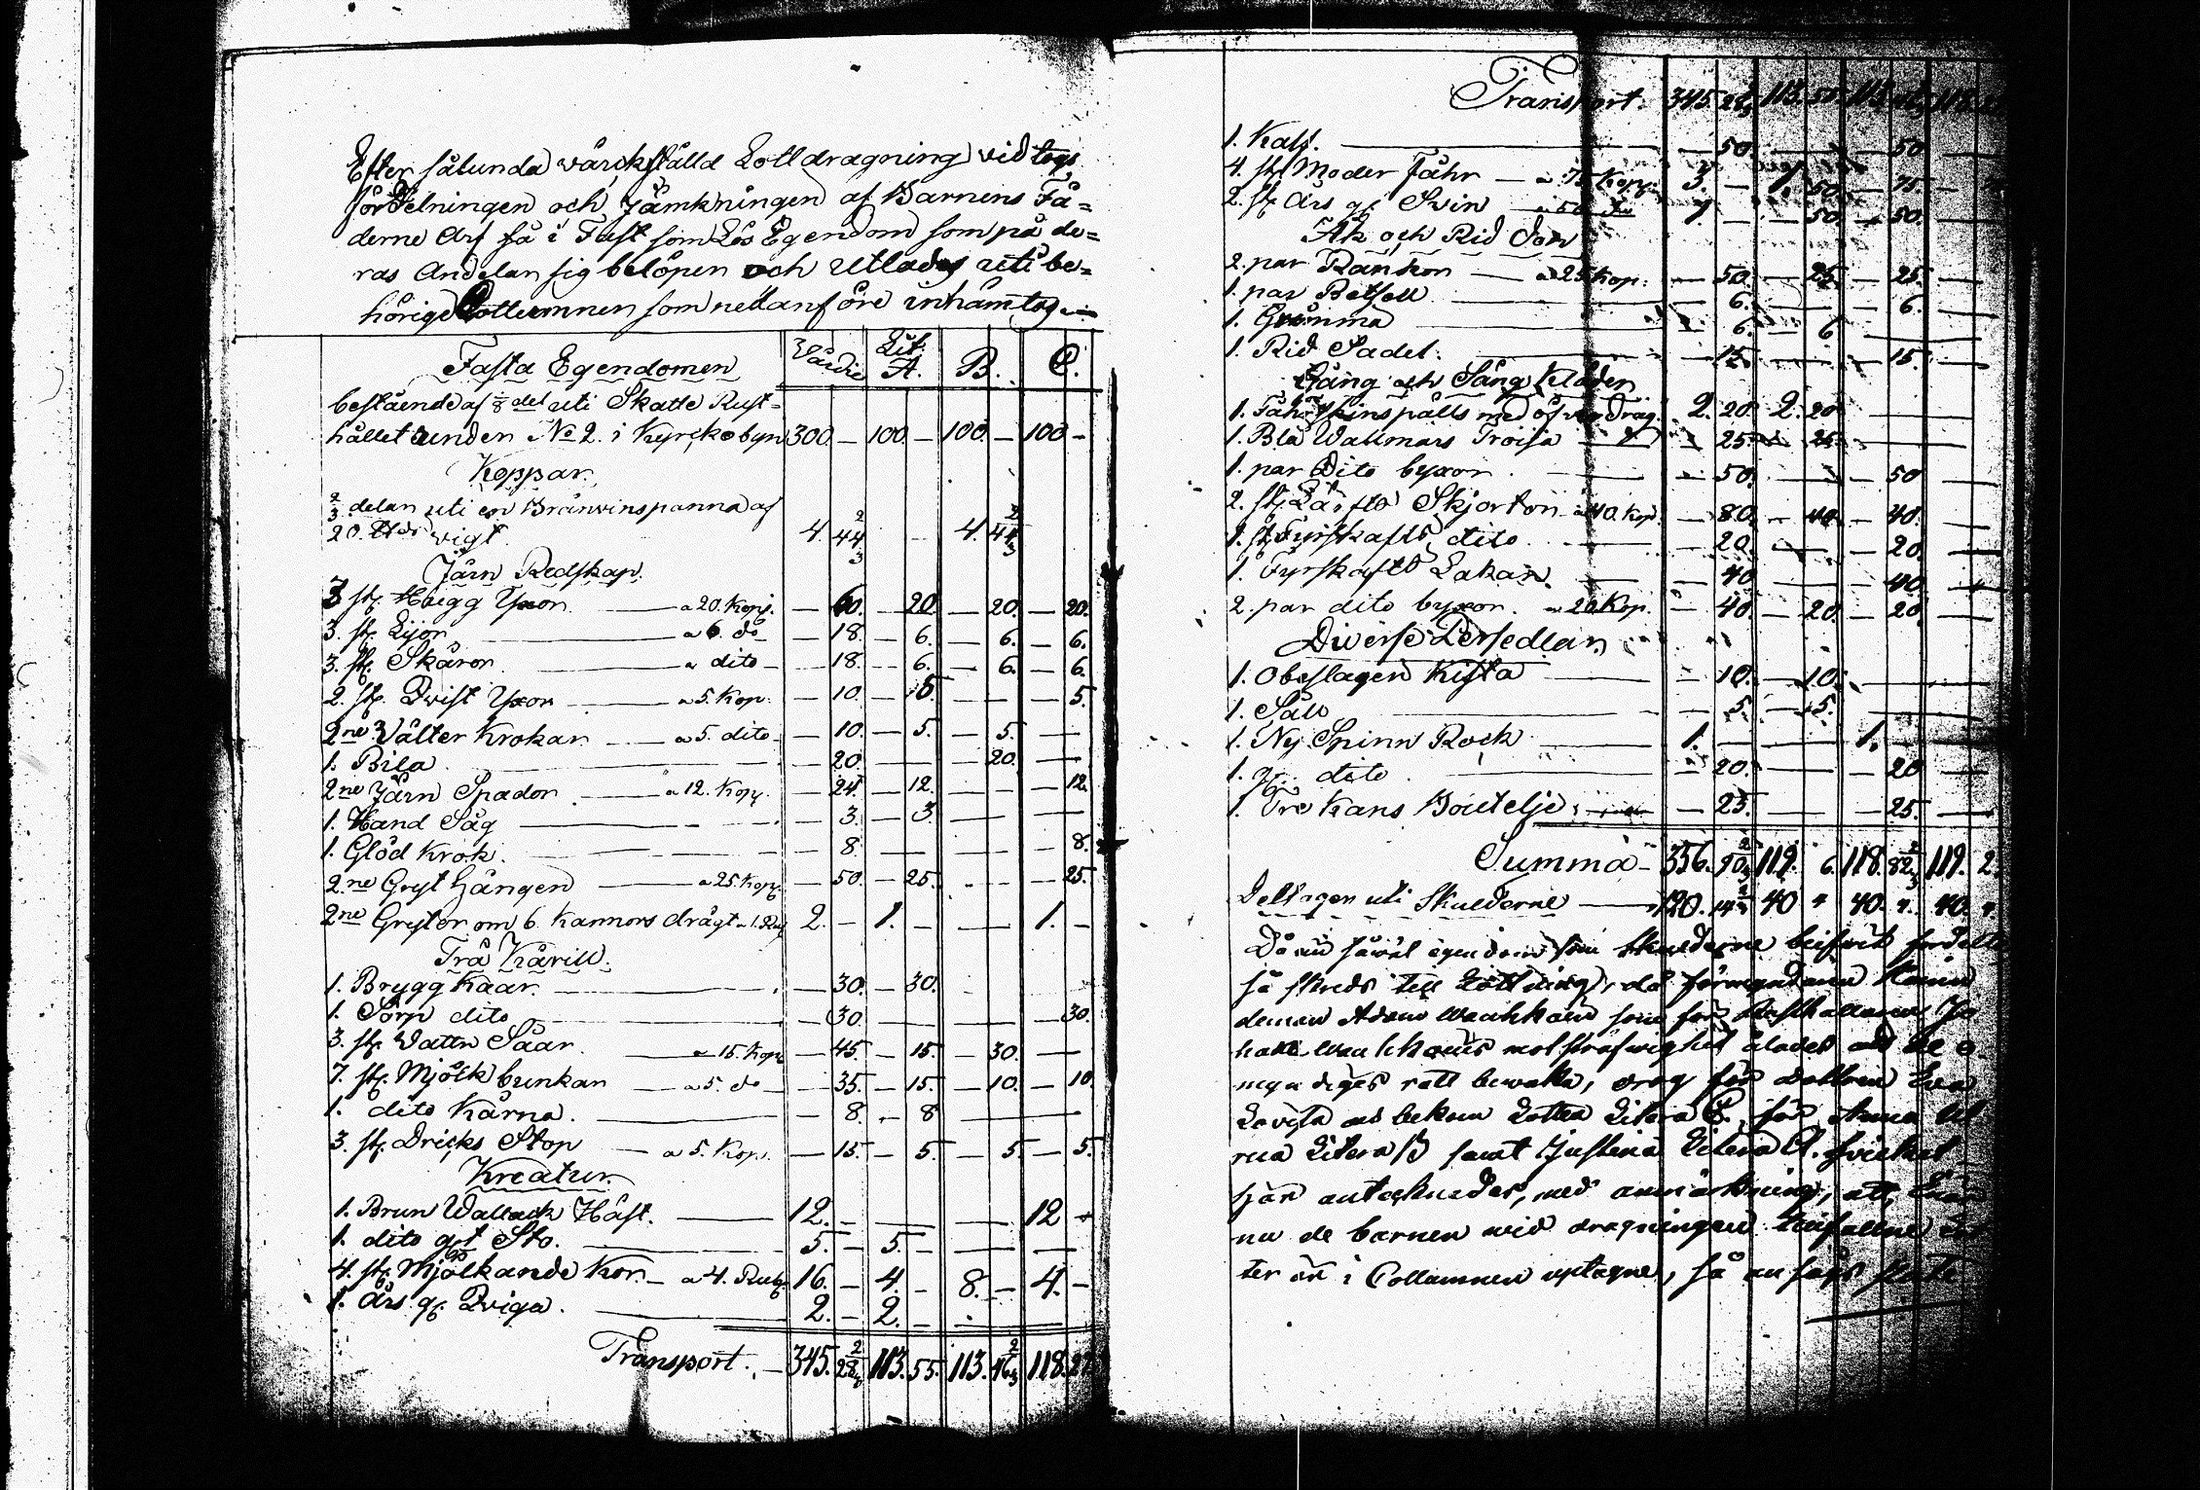 Efter sålunda värckställd Lottdragning vidtogs
fördelningen och jämkningen af Barnens Fä=
derne Arf så i Fast som Lös Egendom som på de=
ras Andelar sig belöper och utlades uti be=
hörige Collumner som nedanföre inhämtas
Fasta Egendomen Värdie Litt. A. B. C.
bestående af 1/8 del uti Skatte Rust=
hållet under No 2. i Kyrckobyn 300 — 100 — 100 — 100 —
Koppar.
2/3 delar uti en Bränvinspanna af
20. vigt. 4. 44 2/3 4. 44 2/3
Järn Redskap.
3 st. Hugg Yxor — a 20. Kop. — 60. — 20. — 20. — 20.
3. st. Lijor — a 6. do — 18. — 6. — 6. — 6.
3. st. Skäror — a dito — 18. — 6. — 6. — 6.
2. st. Qvist Yxor — a 5. Kop. — 10. — 5 — — — 5.
2ne Välter Krokar — a 5. dito — 10. — 5. — 5. —
1. Bila — 20. — — 20. —
2ne Järn Spador — a 12. Kop. — 24. — 12. — — 12.
1. Hand Såg — 3. — 3. — —
1. Glöd Krok. — 8. — — — 8.
2ne Gryt Hängen — a 25. Kop. — 50. — 25. — — 25.
2ne Grytor om 6 Kannors drägt a 1. Rub. 2. — 1. — — 1. —
Trä Kärill.
1. Brygg Kaar. — 30. — 30.
1. Sörp dito — 30. — — — 30.
3. st. Vattn Såar. — a 15. Kop. — 45. — 15. — 30. —
7. st. Mjölk bunkar — a 5. do — 35. — 15. — 10. — 10
1. dito Kärna. — 8. — 8 — —
3. st. Dricks Stop — a 5. Kop. — 15. — 5. — 5 — 5.
Kreatur.
1. Brun Wallack Häst. — 12. — — — 12 —
1. dito gt Sto. — 5. — 5. — — —
4. st. Mjölkande Kor. — a 4. Rub. 16. — 4. — 8. — 4. —
1. Års g. Qviga. — 2. — 2. —
Transport. — 345. 28 2/3 113. 55. 113. 46 2/3 118. 27
Transport. 345. 28 2/3 113. 55 113. 46 2/3 118.
1. Kalf. — 50. — 50
4. st. Moder Fåhr — a 75 Kop. 3. — 1. 50. — 75. —
2. st. Års g. Svin — a 50 do 1. — — 50. — 50.
Åk och Rid Don
2. par Rankor — a 25 Kop. — 50. — 25 — 25.
1. par Betsell — 6. — 6.
1. Grimma — 6. — 6
1. Rid Sadel. — 15. — 15.
Gång och Säng Kläder
1. Fåhrskinspälts med öfverdrag. 2. 20. 2. 20
1. Blå Wallmars Tröija — 25. — 25.
1. par Dito byxor. — 50. — 50
2. st. Lärfts Skjortor a 40. Kop. — 80. — 40. — 40.
1. st. Fyrskafts dito. — 20. — 20.
1. Fyrskafts Lakan. — 40 — 40
2. par dito byxor. a 20 Kop. — 40. — 20. — 20.
Diverse Persedlar
1. Obeslagen Kista — 10. — 10.
1. Såll — 5. — 5.
1. Ny Spinn Rock — 1. — 1.
1. g. dito. — 20. — 20
1. Tre Kans Boutelje — 25. — 25.
Summa — 356. 90 2/3 119. 6. 118. 82 2/3 119. 2
Deltagen uti Skulderne — 120. 14 40 40. 40.
Då nu såväl egendom som skulderne
så skreds till Lottning, då förmyndaren
deman Adam som för Rusthållaren
motsträfvighet ålades
rätt bevaka, drog för dottren Eva
Lovisa och bekom Lotten Litera C, för Anna
rica Litera B samt Justina Litera A. hvilket
här antecknades, med anmärkning, att
na de barnen wid dragningen tillfallne
ter är i Collumnen uptagne, så ansågs